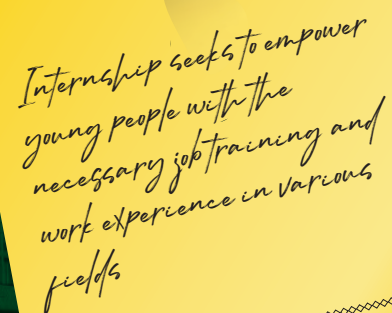 Internship seeks to empower
young people with the
necessary job training and
work experience in various
fields